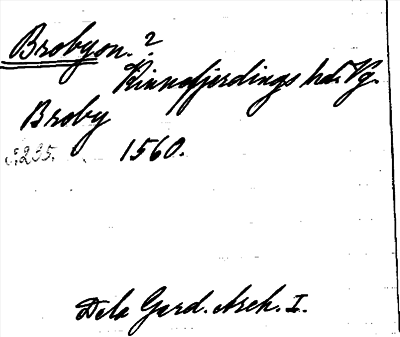 Brobyn. ?
Kinnefjerdings hd. Vg.
Broby
s. 235. 1560.
Dela Gard. Arch. I.